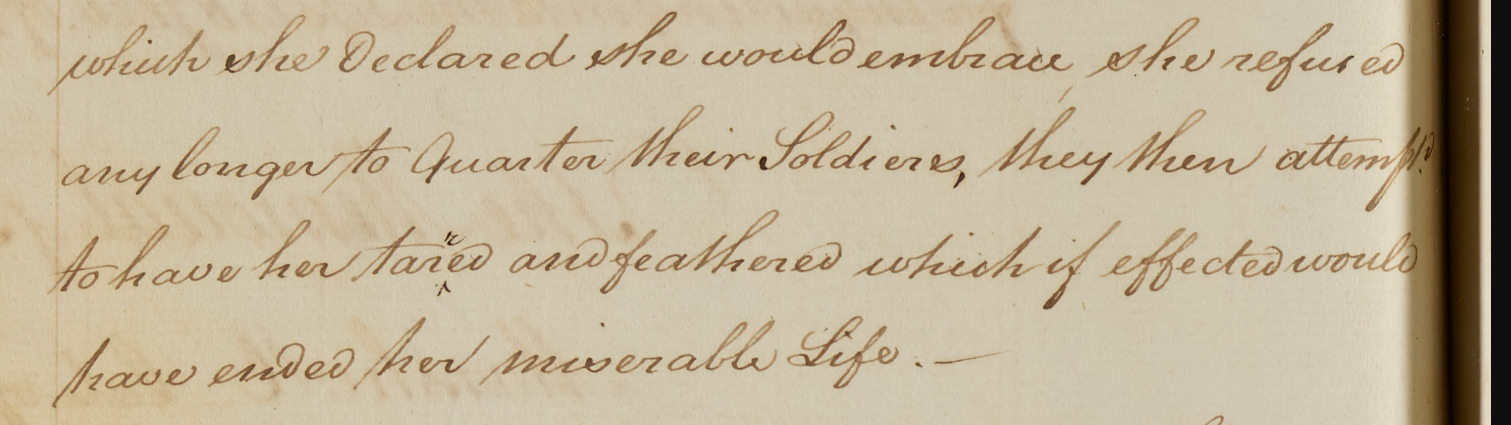 which she Declared she would embrace, she refused
any longer to Quarter their Soldiers, they then attempt'd
to have her tarred and feathered which if effected would
have ended her miserable Life. —